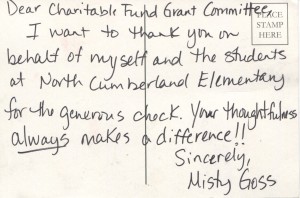 Dear Charitable Fund Grant Committee,
PLACE
STAMP
HERE
I want to thank you on
behalf of myself and the students
at North Cumberland Elementary
for the generous check. Your thoughtfulness
always makes a difference!!
Sincerely,
Misty Goss